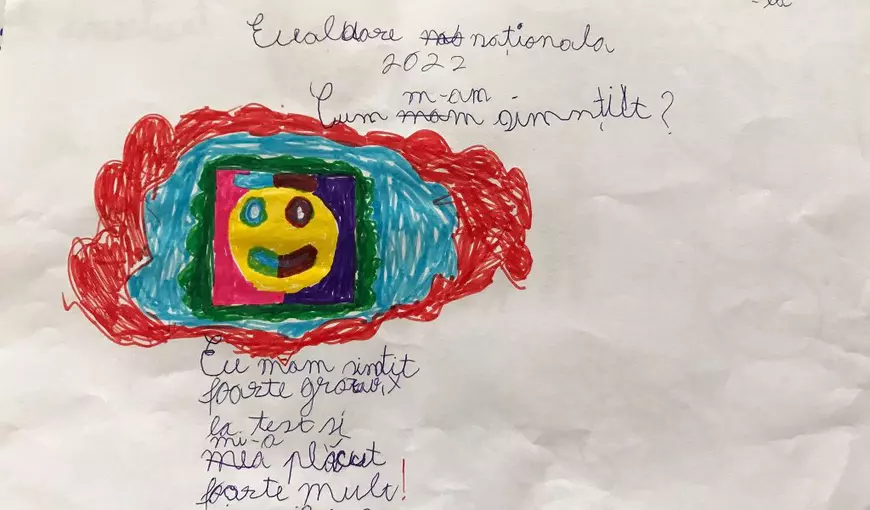 Eualdare naționala
2022
m-am
Cum mam simnțilt?
Eu mam simțit
foarte grozav,
la test și
mi-a
mea plăcut
foarte mult!